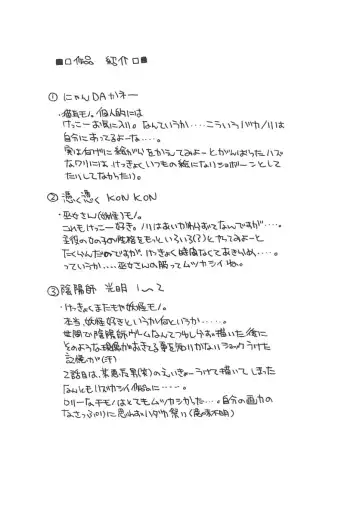 ■□作品 紹介□■
①にゃんDAかネー
・猫耳モノ。個人的には
けっこーお気に入り。なんていうか‥‥こういうバカノリは
自分にあってるよーな‥‥。
実は右上げに絵がらをかえてみよーとがんばったハズ
なワリには、けっきょくいつもの絵になりショボーンとして
たりしてなかったり)。
②憑く憑く KON KON
・巫女さん(妖怪)モノ。
これもけっこー好き。ノリはあいかわらずってなんですが‥‥。
主役の女の子の性格をもっといろいろ(?)とやってみよーと
たくらんだのですが、けっきょく時間なくてあきらめ‥‥。
っていうか‥‥巫女さんの服ってムツカシイね。
③陰陽師 光明 1〜2
・けっきょくまたもや妖怪モノ。
本当、妖怪好きというか何というか‥‥‥。
世間で陰陽師ゲームなんてつらしらず描いた後に
そのような現象がおきてる事を知りかなりショックうけた
記憶が(汗)
2話目は、某悪友(笑)のえいきょーうけて描いてしまった
なんともハズカシイ作品に‥‥‥。
ロリーなキモノはとてもムツカシかった‥‥。自分の画力の
なさっぷりに思わずハダカ祭り(意味不明)